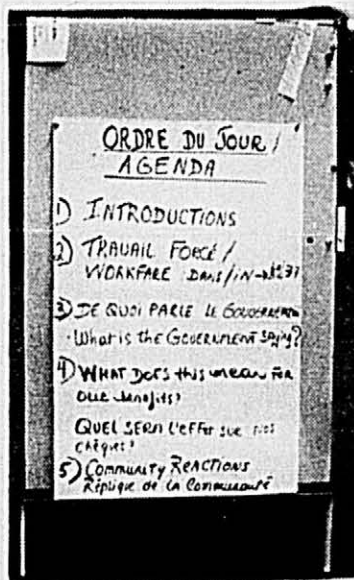 ORDRE DU JOUR /
AGENDA
1) INTRODUCTIONS
2) TRAVAIL FORCÉ /
WORKFARE DANS/IN
3) DE QUOI PARLE LE
What is the GOVERNMENT SAYING?
4) WHAT DOES this mean FOR
OUR benefits?
QUEL SERA L'EFFET SUR NOS
chèques?
5) Community REACTIONS
Réplique de la Communauté